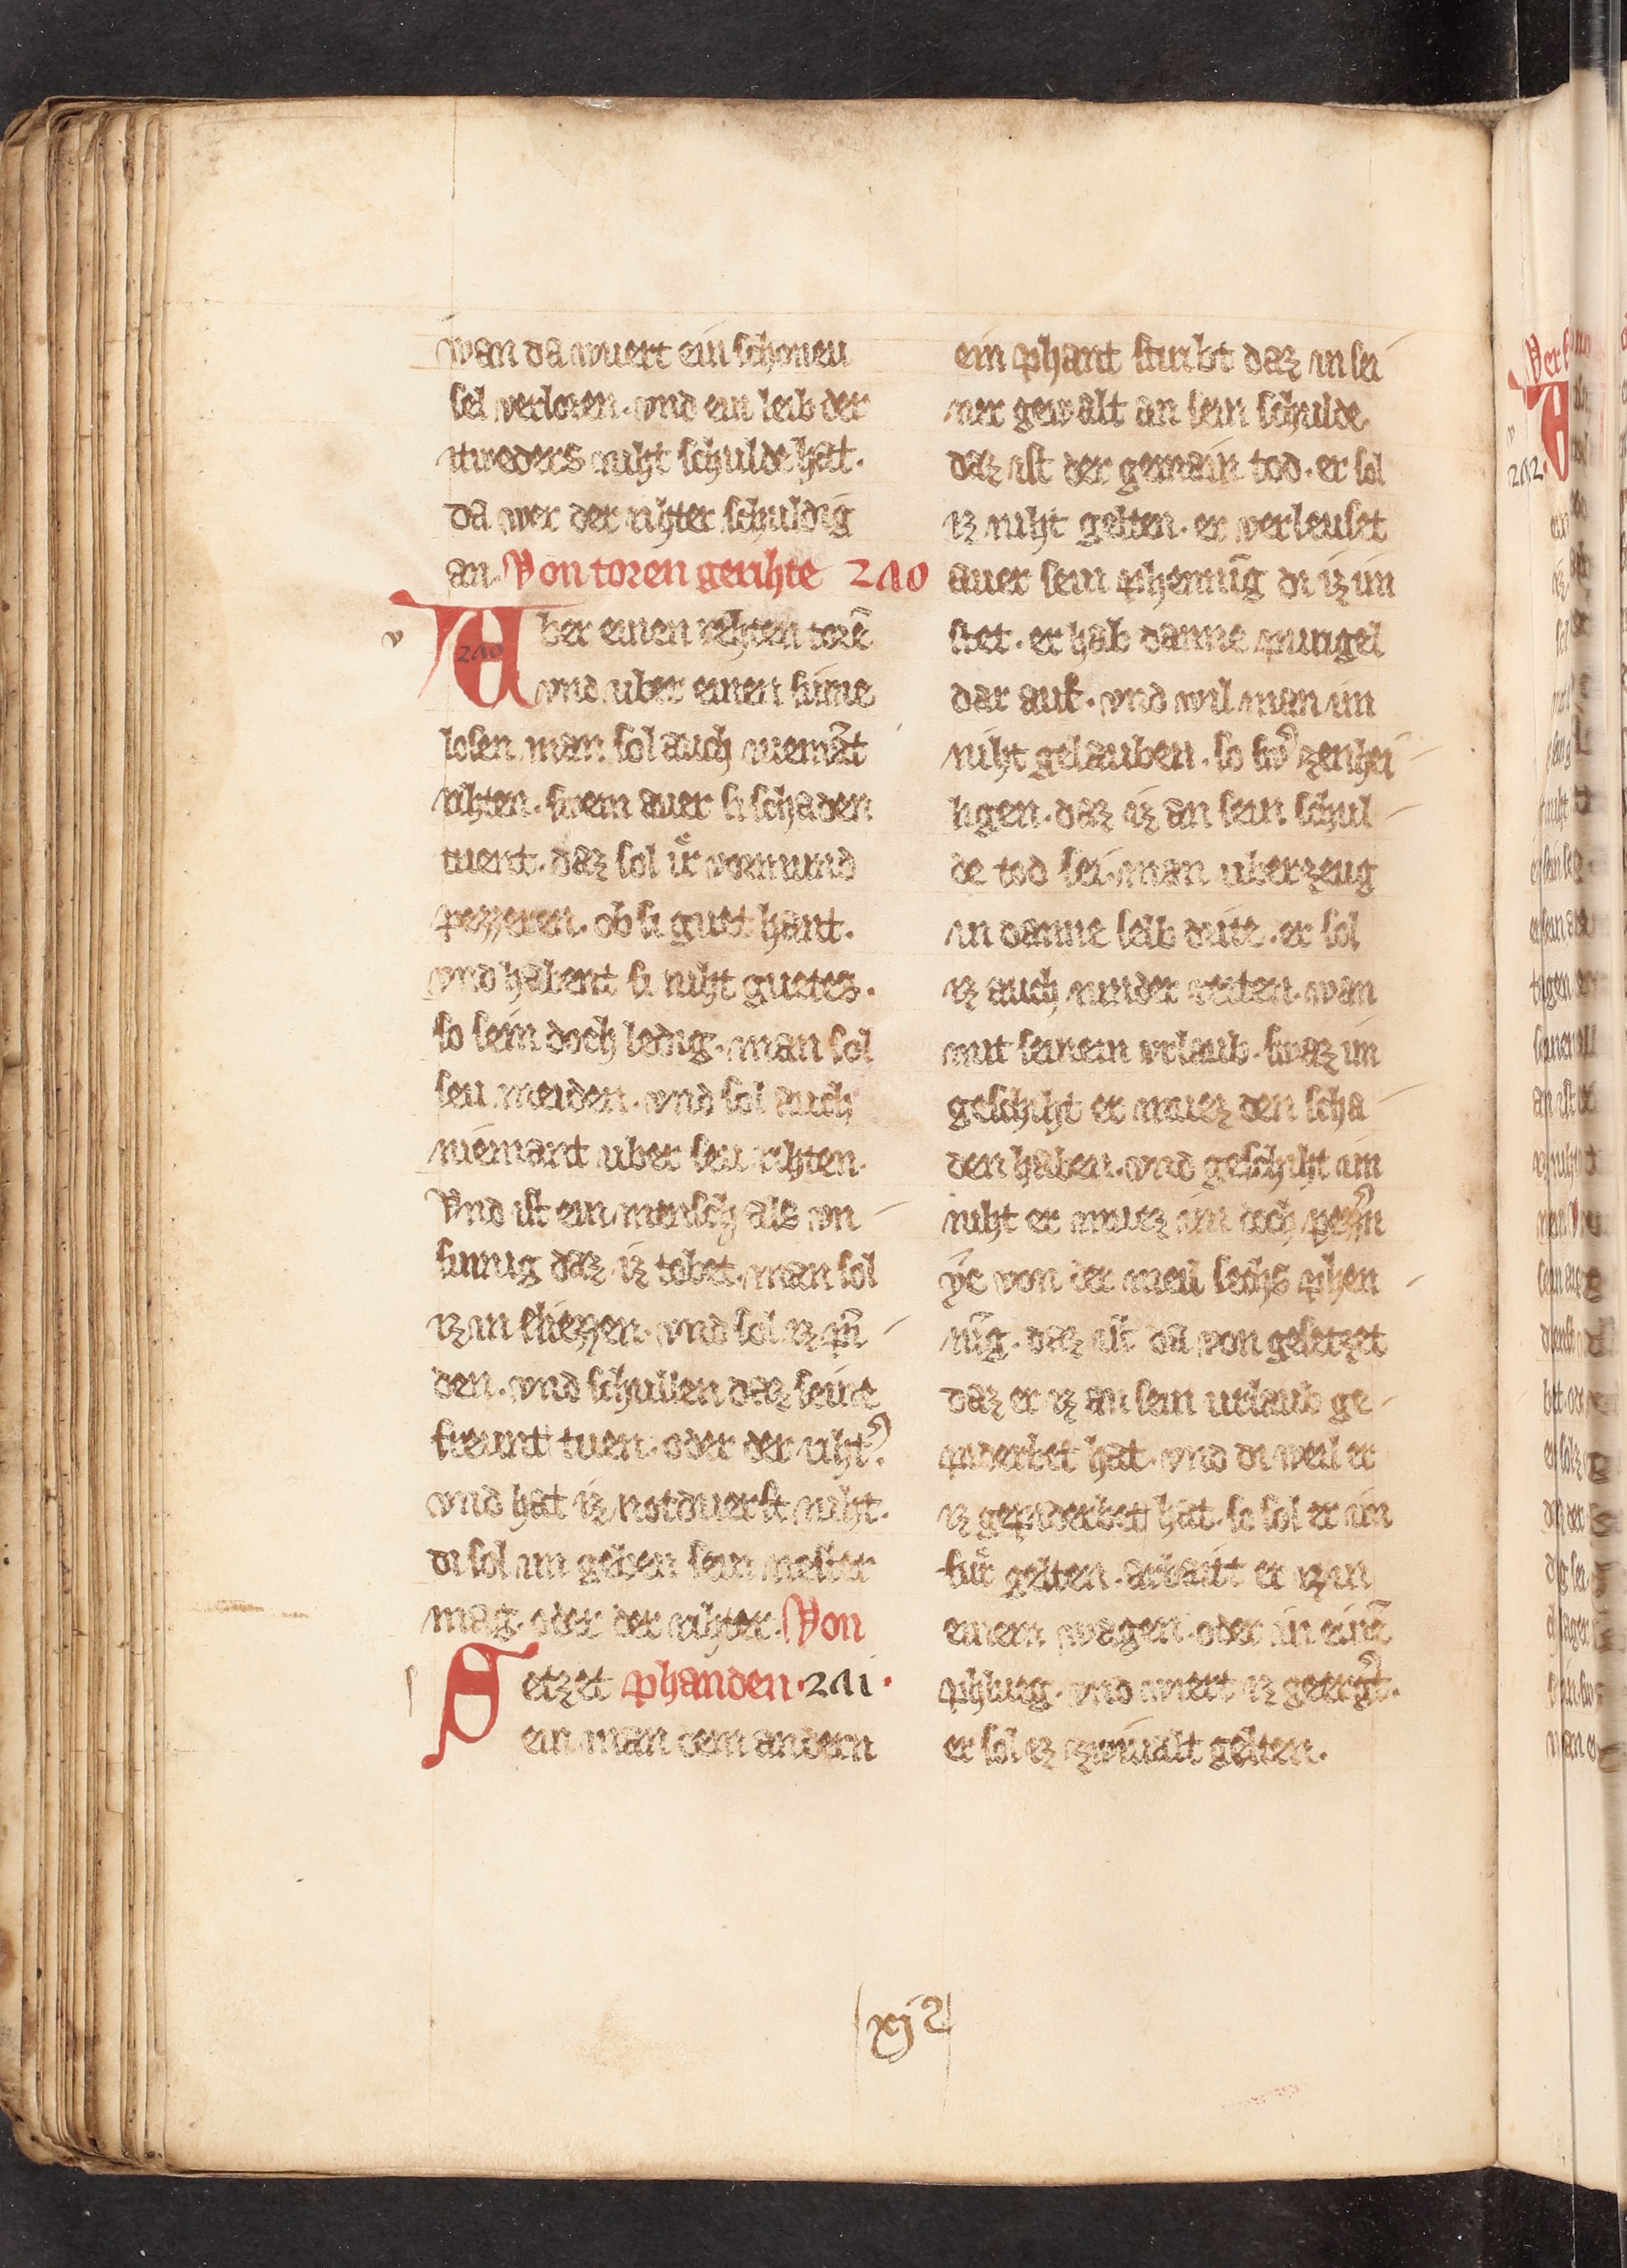 wan da wuert ein schoneu
sel verloren. vnd ein leib der
itweders niht schulde hat.
da wer der rihter schuldig
an. Von toren gerihte 210
v
210
Vber einen rehten torē
vnd uber einen sinne
losen man sol auch niemāt
rihten. swem auer si schaden
tuent. daz sol ir vormund
pezzeren. ob si guet hant.
vnd habent si niht guetes.
so sein doch ledig. man sol
seu meiden. vnd sol auch
niemant uber seu rihten.
Vnd ist ein mensch als vn
sinnig daz iz tobet. man sol
iz in sliezzen. vnd sol iz pin
den. vnd schullen daz seine
freunt tuen. oder der riht᷑.
vnd hat iz notduerft niht.
di sol im geben sein nester
mag. oder der rihter. Von
s
Setzet phanden. 211.
ein man dem andern
ein phant stirbt daz in sei
ner gewalt an sein schulde
daz ist der gemain tod. er sol
iz niht gelten. er verleuset
auer sein phenning di iz im
stet. er hab danne puergel
dar auf. vnd wil man im
niht gelauben. so sw᷑ ze hei
ligen. daz iz an sein schul
de tod sei. man uberzeug
in danne selb dritte. er sol
iz auch ninder reiten. wan
mit seinem vrlaub. swaz im
geschiht er muez den scha
den haben. vnd geschiht im
niht er muez im doch pezz᷑n
ye von der meil sechs phen
nīg. daz ist da von gesetzet
daz er iz an sein urlaub ge
niderbet hat. vnd di weil er
iz geniderbet hat. so sol er im
fur gelten. arbait er iz in
einem wagen. oder in einē
phlueg. vnd wiert iz geerg᷑t.
er sol ez zwiualt gelten.
xj9